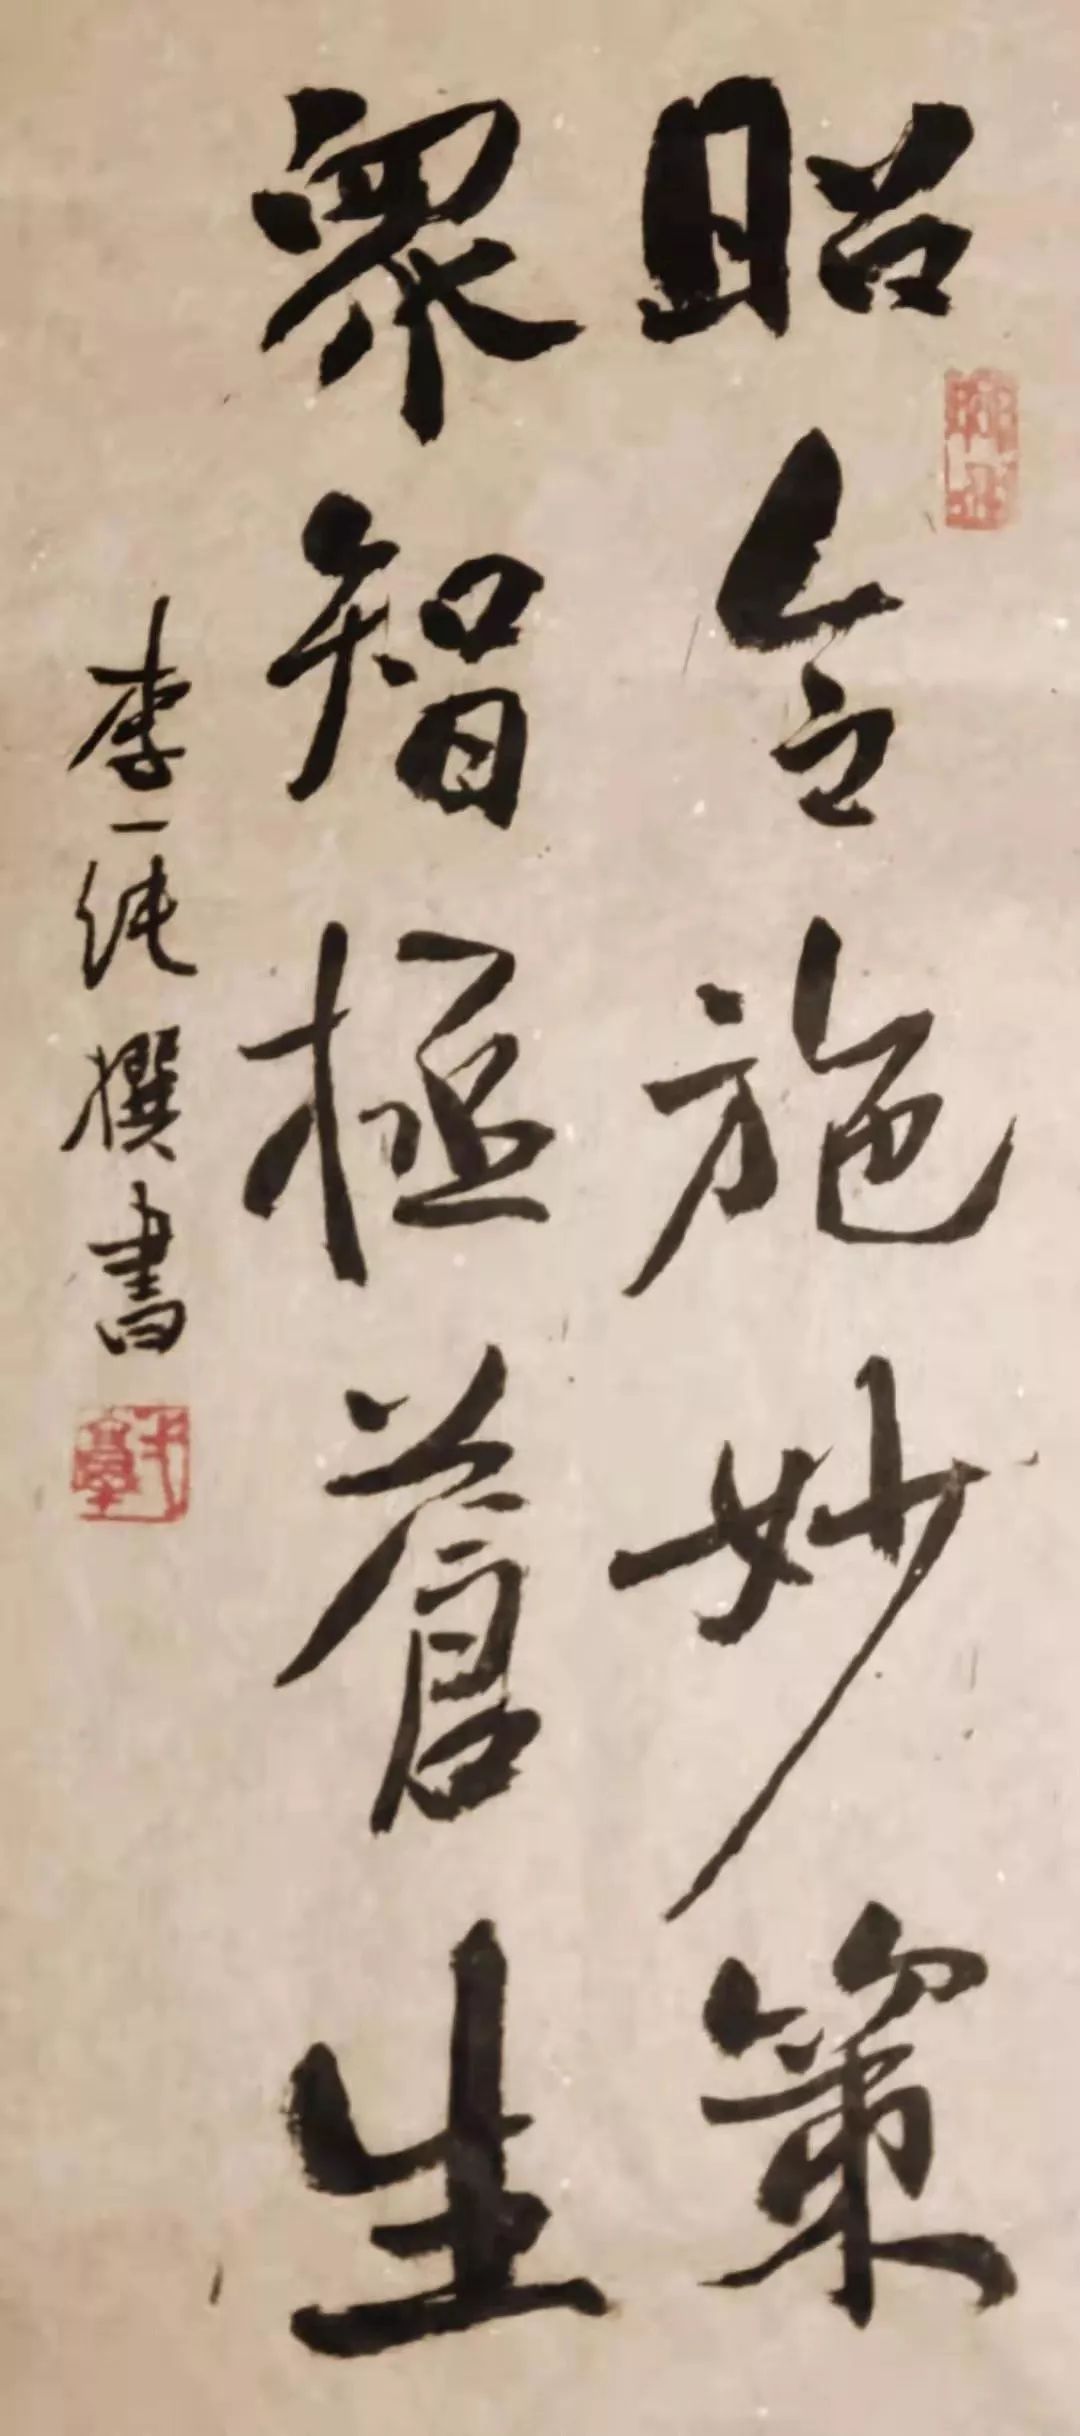 昭令施妙策
眾智極蒼生
李一純撰書